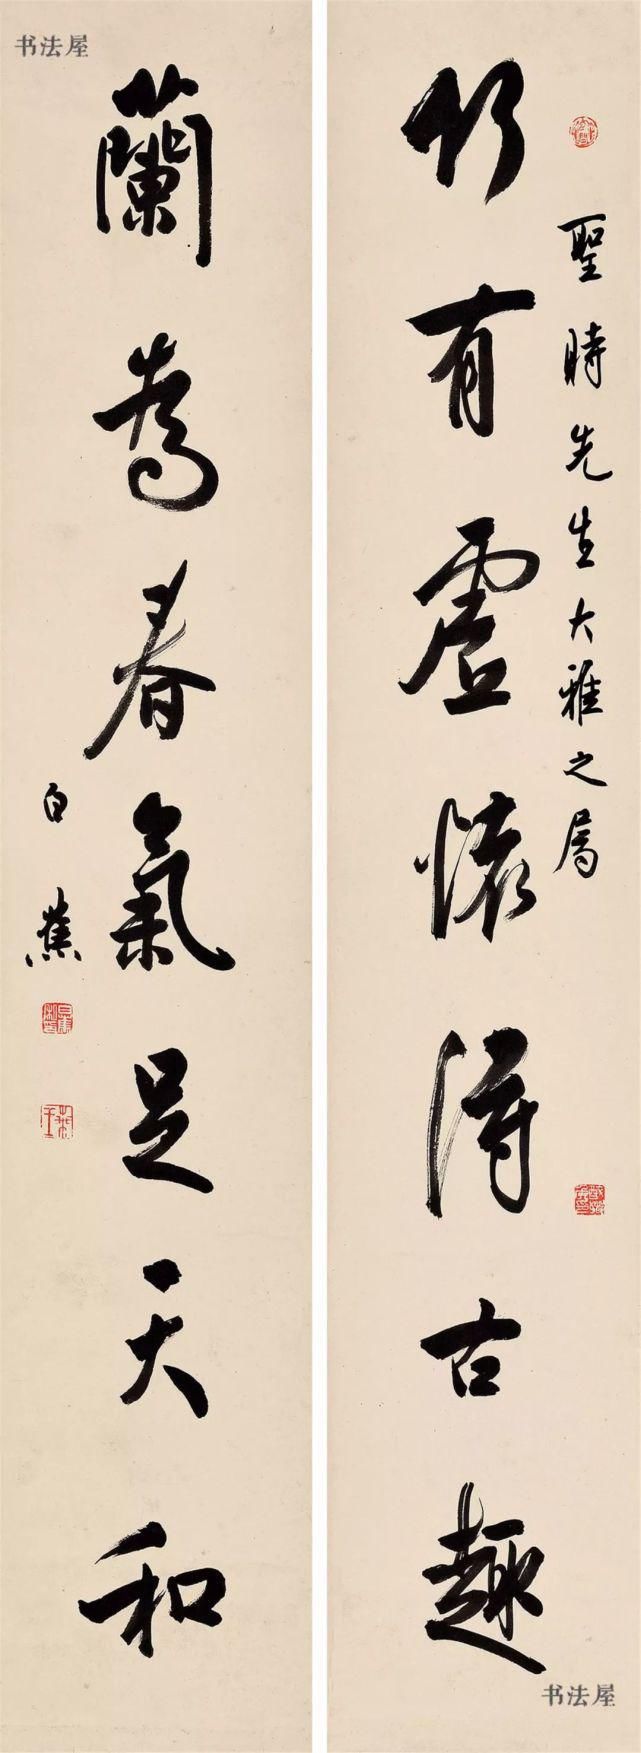 聖時先生大雅之屬
竹有虛懷得古趣
蘭為春氣足天和
白蕉
书法屋
书法屋